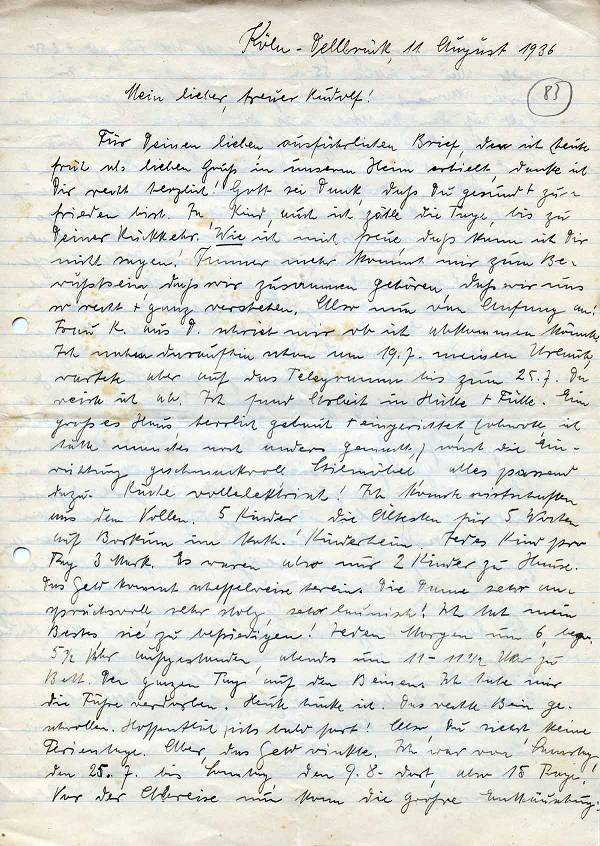 Köln-Dellbrück, 11. August 1936
83
Mein lieber, treuer Rudolf!
Für Deinen lieben ausführlichen Brief, den ich heute
früh als lieben Gruß in unserem Heim erhielt, danke ich
Dir recht herzlich! Gott sei Dank, daß Du gesund + zu-
frieden bist. Ja Kind, auch ich zähle die Tage, bis zu
Deiner Rückkehr. Wie ich mich freue, daß kann ich Dir
nicht sagen! Immer mehr kommt mir zum Be-
wußtsein, daß wir zusammen gehören, daß wir uns
so recht + ganz verstehen. Also nun von Anfang an!
Frau K. aus D. schrieb mir ob ich abkommen könnte.
Ich nahm daraufhin schon am 19.7. meinen Urlaub,
wartete aber auf das Telegramm bis zum 25.7. Da
reiste ich ab. Ich fand Arbeit in Hülle + Fülle. Ein
großes Haus, herrlich gebaut + eingerichtet (obwohl ich
hätte manches noch anders gemacht,) war die Ein-
richtung geschmackvoll Stilmöbel alles passend
dazu. Küche vollelektrisch! Ich konnte wirtschaften
aus dem Vollen. 5 Kinder die Ältesten für 5 Wochen
auf Borkum im kath. Kinderheim. Jedes Kind pro
Tag 3 Mark. Es waren also nur 2 Kinder zu Hause.
Das Geld kommt scheffelweise herein. Die Dame sehr an-
spruchsvoll, sehr stolz, sehr launisch! Ich tat mein
Bestes, sie zu befriedigen! Jeden Morgen um 6, bezw.
5½ Uhr aufgestanden, abends um 11-11½ Uhr zu
Bett. Den ganzen Tag auf den Beinen. Ich habe mir
die Füße verdorben. Heute hinke ich. Das rechte Bein ge-
schwollen. Hoffentlich gehts bald fort! Also, Du siehst, keine
Ferientage. Aber das Geld winkte. Ich war von Samstag,
den 25. 7. bis Sonntag den 9.8. dort, also 15 Tage!
Vor der Abreise nun kam die große Enttäuschung: